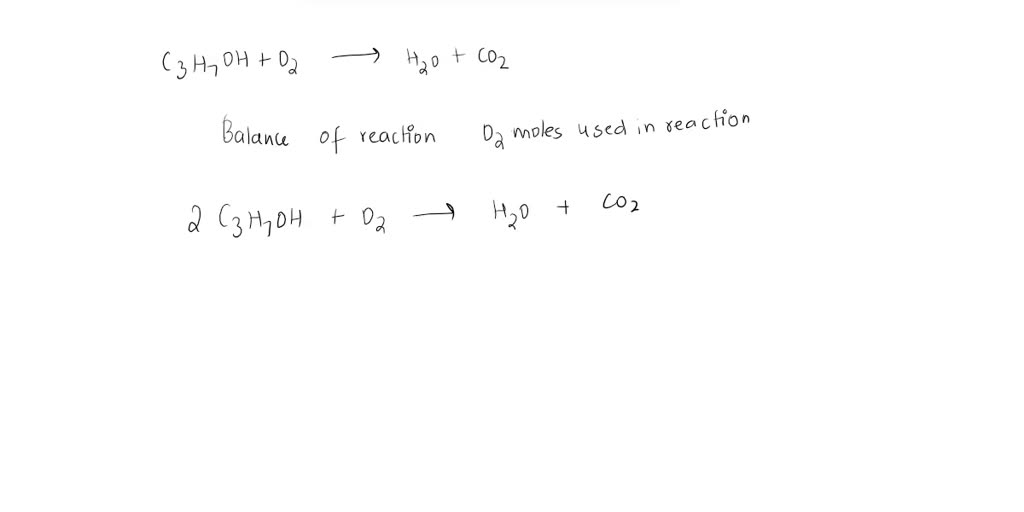 C₃H₇OH + O₂ ⟶ H₂O + CO₂
Balance of reaction O₂ moles used in reaction
2 C₃H₇OH + O₂ ⟶ H₂O + CO₂